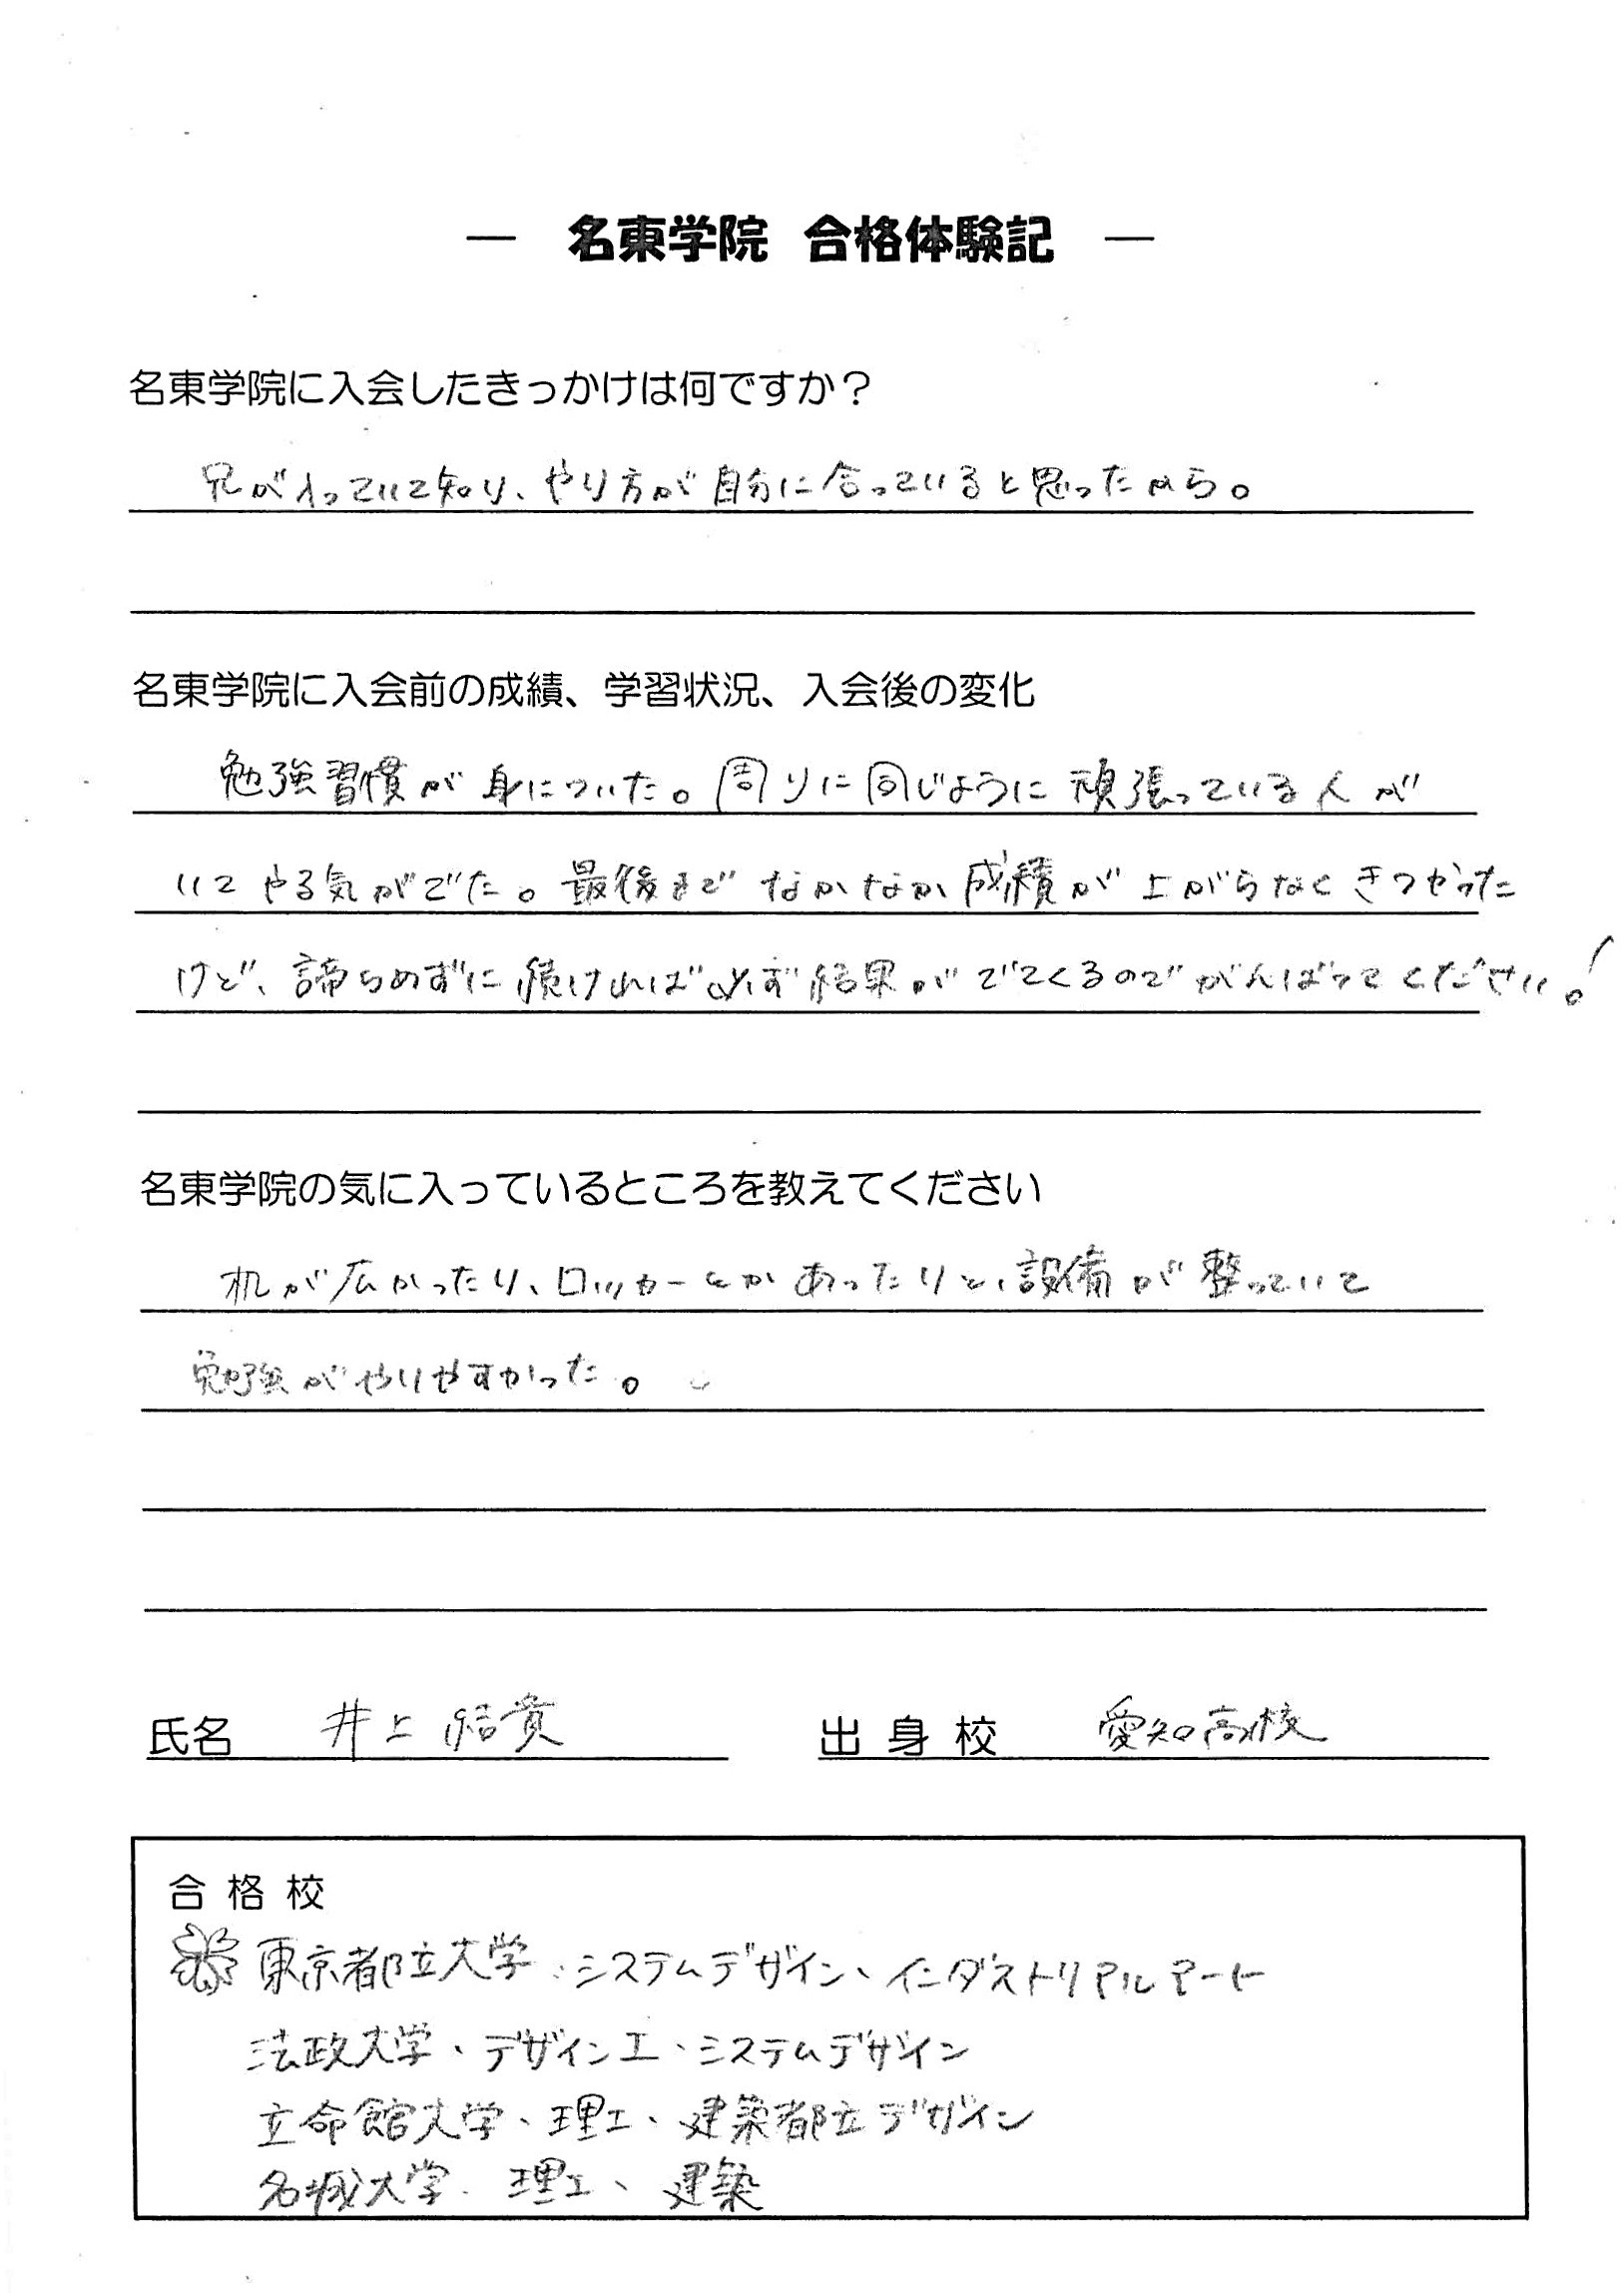 ― 名東学院 合格体験記 ―
名東学院に入会したきっかけは何ですか？
兄が入っていて知り、やり方が自分に合っていると思ったから。
名東学院に入会前の成績、学習状況、入会後の変化
勉強習慣が身についた。周りに同じように頑張っている人が
いてやる気がでた。最後までなかなか成績が上がらなくきつかった
けど、諦らめずに続ければ必ず結果がでてくるのでがんばってください。!
名東学院の気に入っているところを教えてください
机が広かったり、ロッカーとかあったりと、設備が整っていて
勉強がやりやすかった。
氏名 井上 結貴
出身校 愛知高校
合格校
東京都立大学、システムデザイン、インダストリアルアート
法政大学、デザイン工、システムデザイン
立命館大学、理工、建築都立デザイン
名城大学、理工、建築